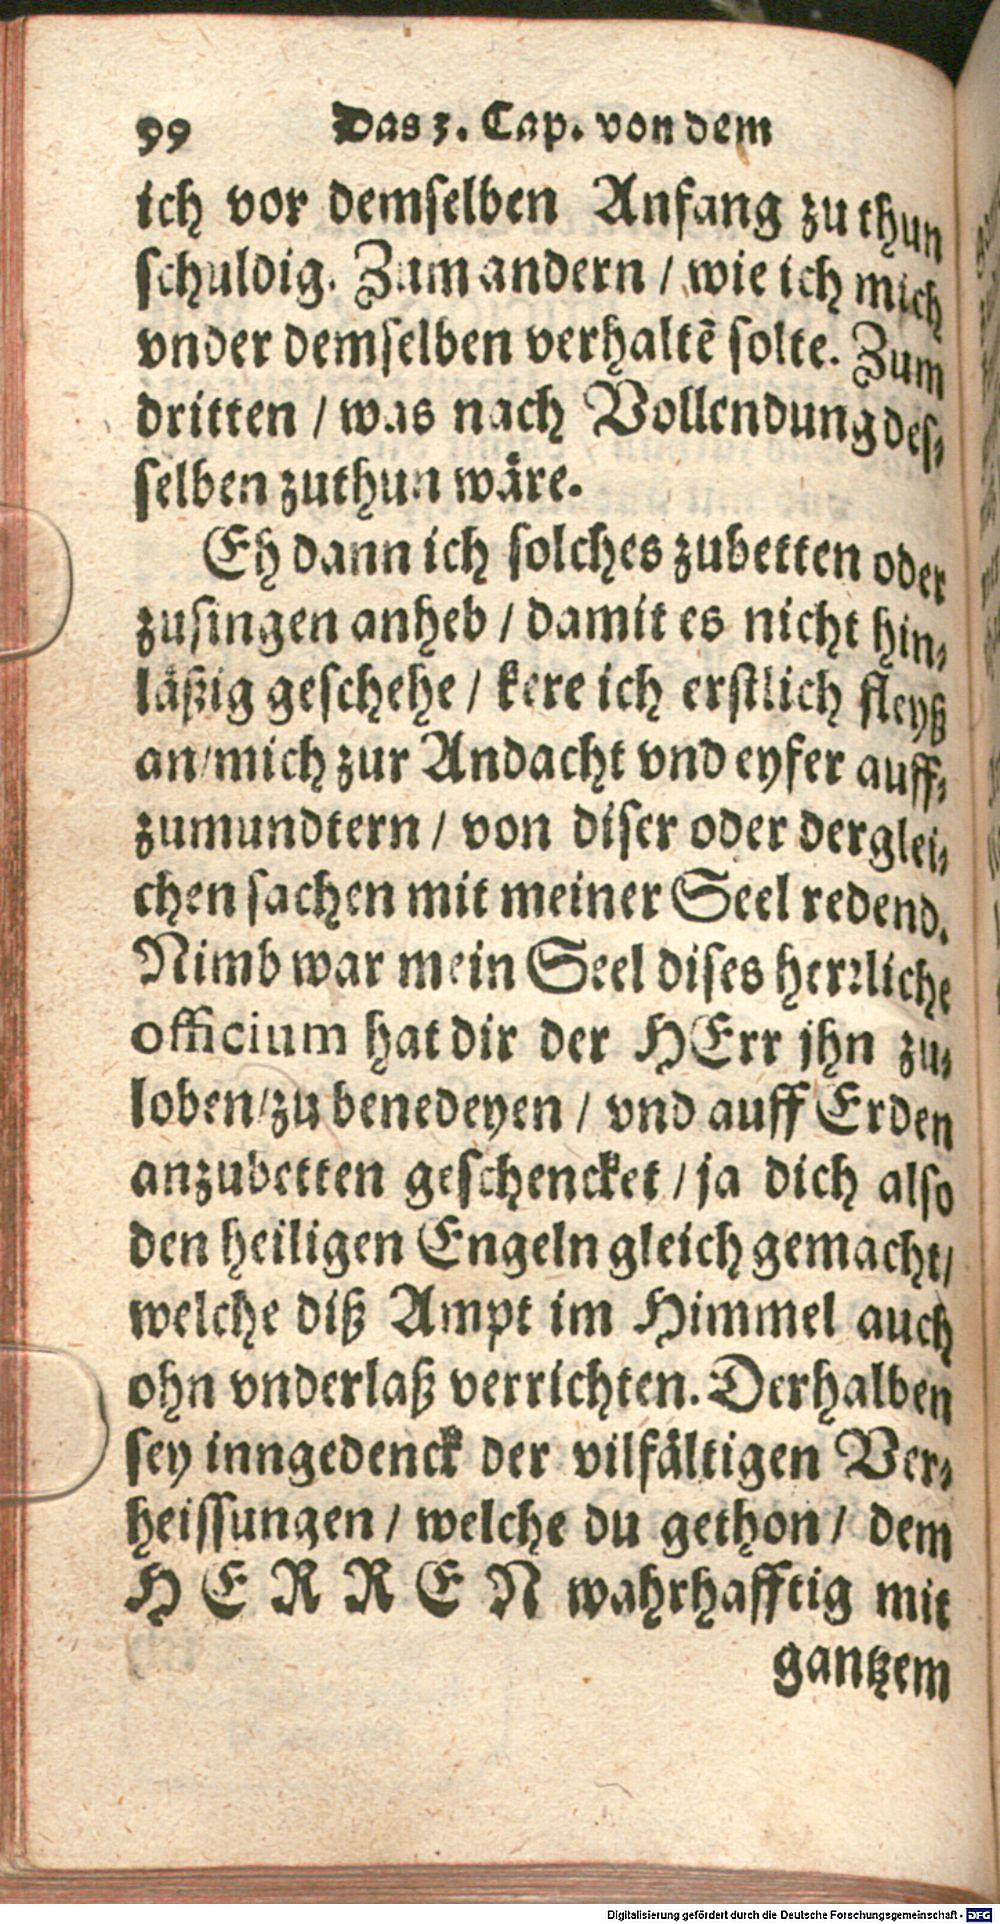 99 Das 3. Cap. von dem
ich vor demselben Anfang zu thun
schuldig. Zum andern / wie ich mich
vnder demselben verhaltẽ solte. Zum
dritten / was nach Vollendung des⸗
selben zuthun wäre.
Eh dann ich solches zubetten oder
zusingen anheb / damit es nicht hin⸗
läßig geschehe / kere ich erstlich fleyß
an/mich zur Andacht vnd eyfer auff⸗
zumundtern / von diser oder derglei⸗
chen sachen mit meiner Seel redend.
Nimb war mein Seel dises herrliche
officium hat dir der HErr jhn zu⸗
loben/zu benedeyen / vnd auff Erden
anzubetten geschencket / ja dich also
den heiligen Engeln gleich gemacht/
welche diß Ampt im Himmel auch
ohn vnderlaß verrichten. Derhalben
sey inngedenck der vilfältigen Ver⸗
heissungen / welche du gethon / dem
HERREN wahrhafftig mit
gantzem
Digitalisierung gefördert durch die Deutsche Forschungsgemeinschaft - DFG